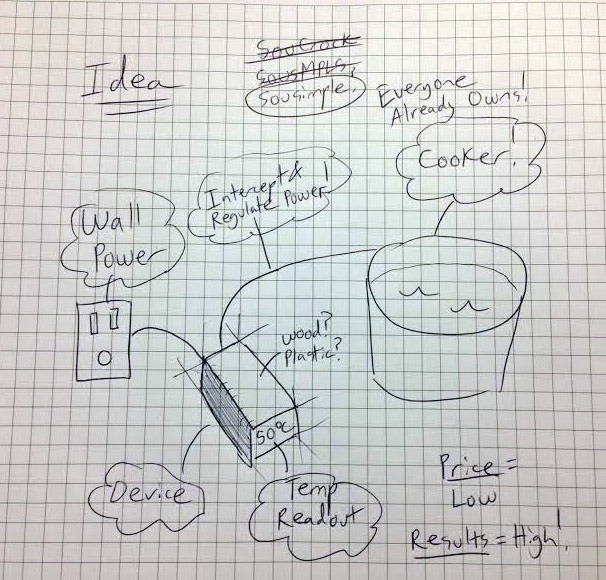 Idea
SousCrock
SousMPLS,
Sousimple.
Everyone
Already Owns!
Cooker!
Intercept &
Regulate Power!
Wall
Power
wood?
plastic?
50°C
Device
Temp
Readout
Price =
Low
Results = High!